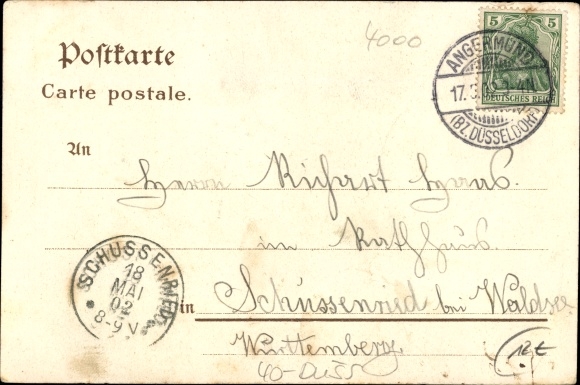 4000
Postkarte
Carte postale.
5 5
DEUTSCHES REICH
ANGERMUND
17.5
(BZ. DÜSSELDORF)
An
Herrn Richart Haas.
im Rathhaus.
SCHUSSENRIED
18
MAI
02
8-9 V
in Schussenried bei Waldsee
Württemberg
40-Duss
12€